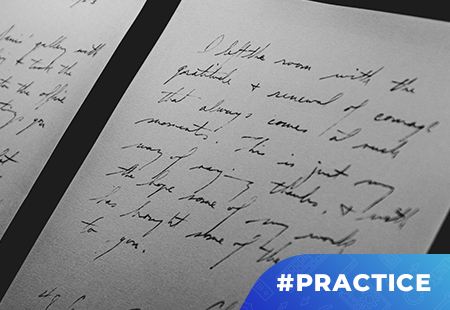 I left the room with the
gratitude & renewal of courage
that always comes at such
moments. This is just my
way of saying thanks, & with
the hope some of my work
has brought some of the
to you.
gallery with
& took the
the office
you
#PRACTICE